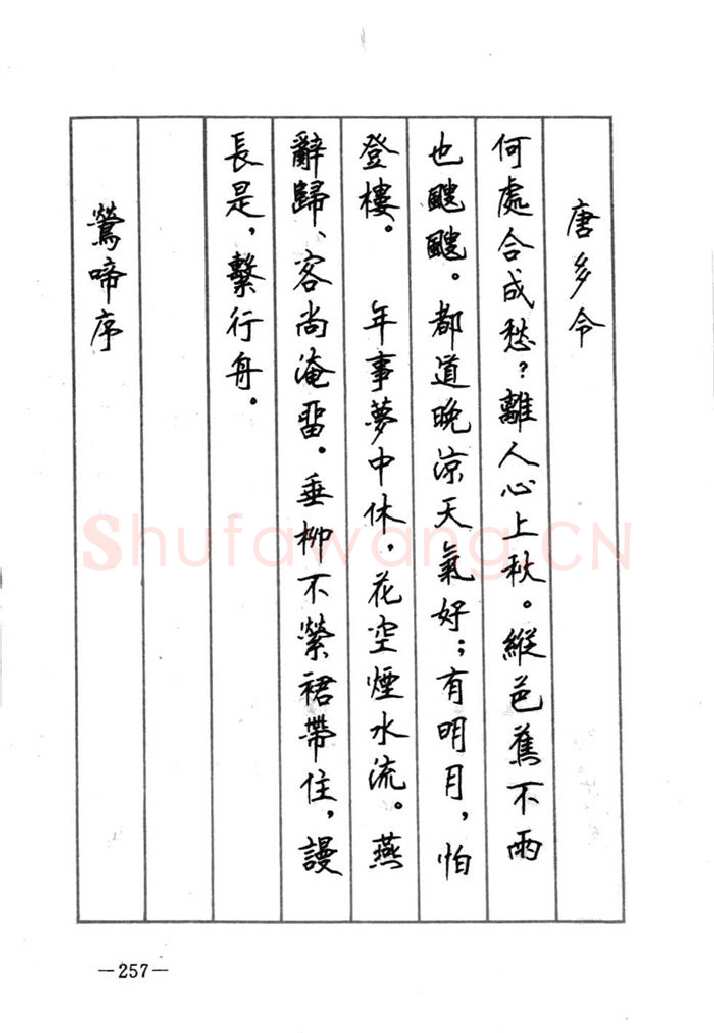 唐多令
何處合成愁？離人心上秋。縱芭蕉不雨
也颼颼。都道晚涼天氣好；有明月，怕
登樓。　年事夢中休，花空煙水流。燕
辭歸、客尚淹留。垂柳不縈裙帶住，謾
長是，繫行舟。
鶯啼序
Shufawang.CN
—257—